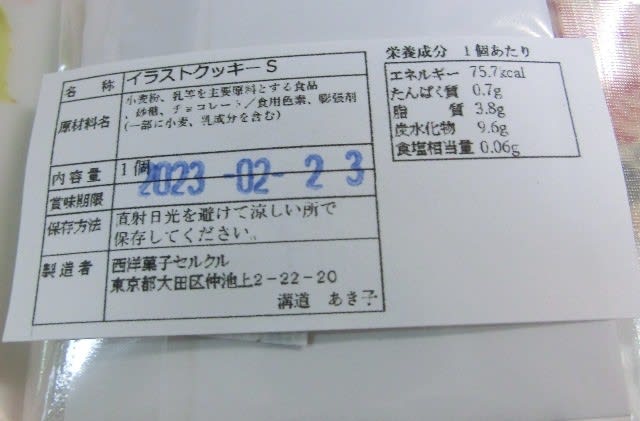 名　称 イラストクッキーS
原材料名 小麦粉、乳等を主要原料とする食品
、砂糖、チョコレート／食用色素、膨張剤
(一部に小麦、乳成分を含む)
内容量 1個
賞味期限 2023-02-23
保存方法 直射日光を避けて涼しい所で
保存してください。
製造者 西洋菓子セルクル
東京都大田区仲池上2-22-20
溝道　あき子
栄養成分　1個あたり
エネルギー 75.7kcal
たんぱく質 0.7g
脂　質 3.8g
炭水化物 9.6g
食塩相当量 0.06g